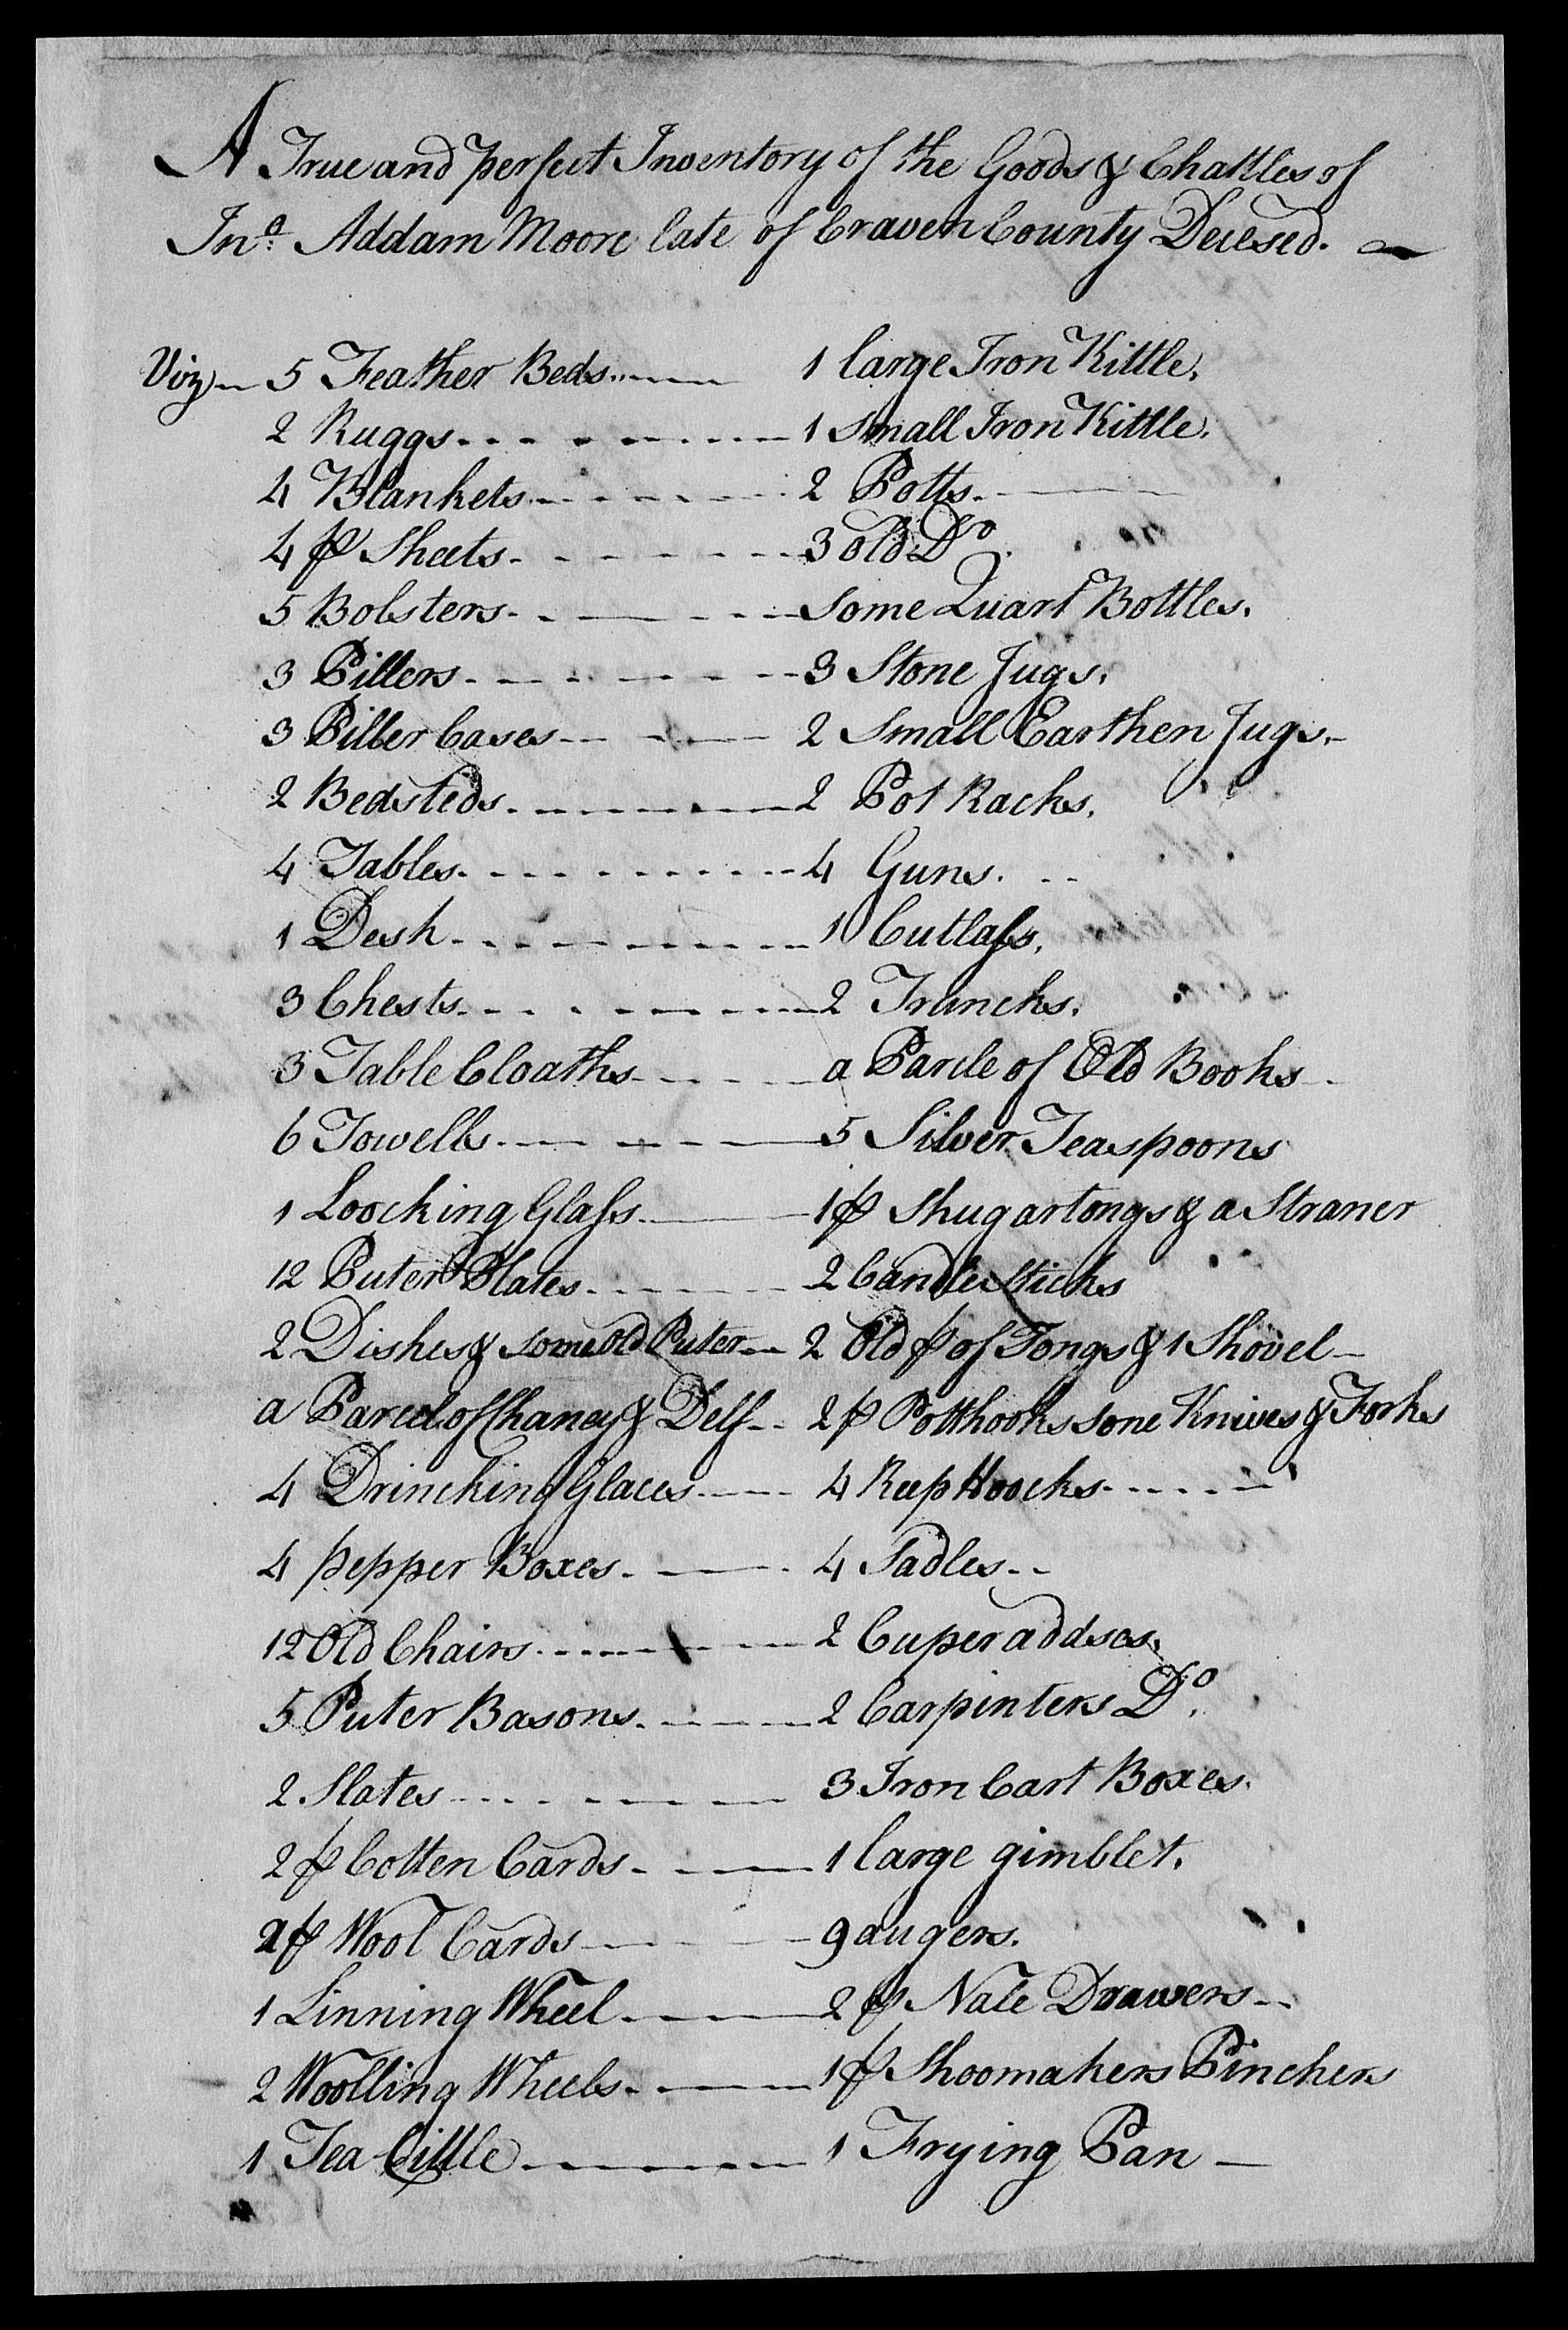 A True and perfect Inventory of the Goods & Chattles of
Jno. Addam Moore late of Craven County Decesed.
Viz 5 Feather Beds 1 large Iron Kittle.
2 Ruggs 1 Small Iron Kittle.
4 Blankets 2 Potts
4 p Sheets 3 old Do.
5 Bolsters Some Quart Bottles.
3 Pillers 3 Stone Jugs.
3 Piller Cases 2 Small Earthen Jugs.
2 Bedsteds 2 Pot Racks.
4 Tables 4 Guns.
1 Desk 1 Cutlass.
3 Chests 2 Truncks.
3 Table Cloaths a Parcle of Old Books
6 Towells 5 Silver Teaspoons
1 Loocking Glass 1 p Shugartongs & a Straner
12 Puter Plates 2 Candle Sticks
2 Dishes & some old Puter 2 Old p of Tongs & 1 Shovel
a Parcel of Chaney & Delf 2 p Potthooks some Knives & Forks
4 Drincking Glaces 4 Reep Hoocks
4 pepper Boxes 4 Sadles
12 Old Chairs 2 Cuper addses.
5 Puter Basons 2 Carpinters Do.
2 Slates 3 Iron Cart Boxes.
2 p Cotten Cards 1 large gimblet.
2 p Wool Cards 9 augers.
1 Linning Wheel 2 p Nale Drawers
2 Woolling Wheels 1 p Shoomakers Pinchers
1 Tea Cittle 1 Frying Pan